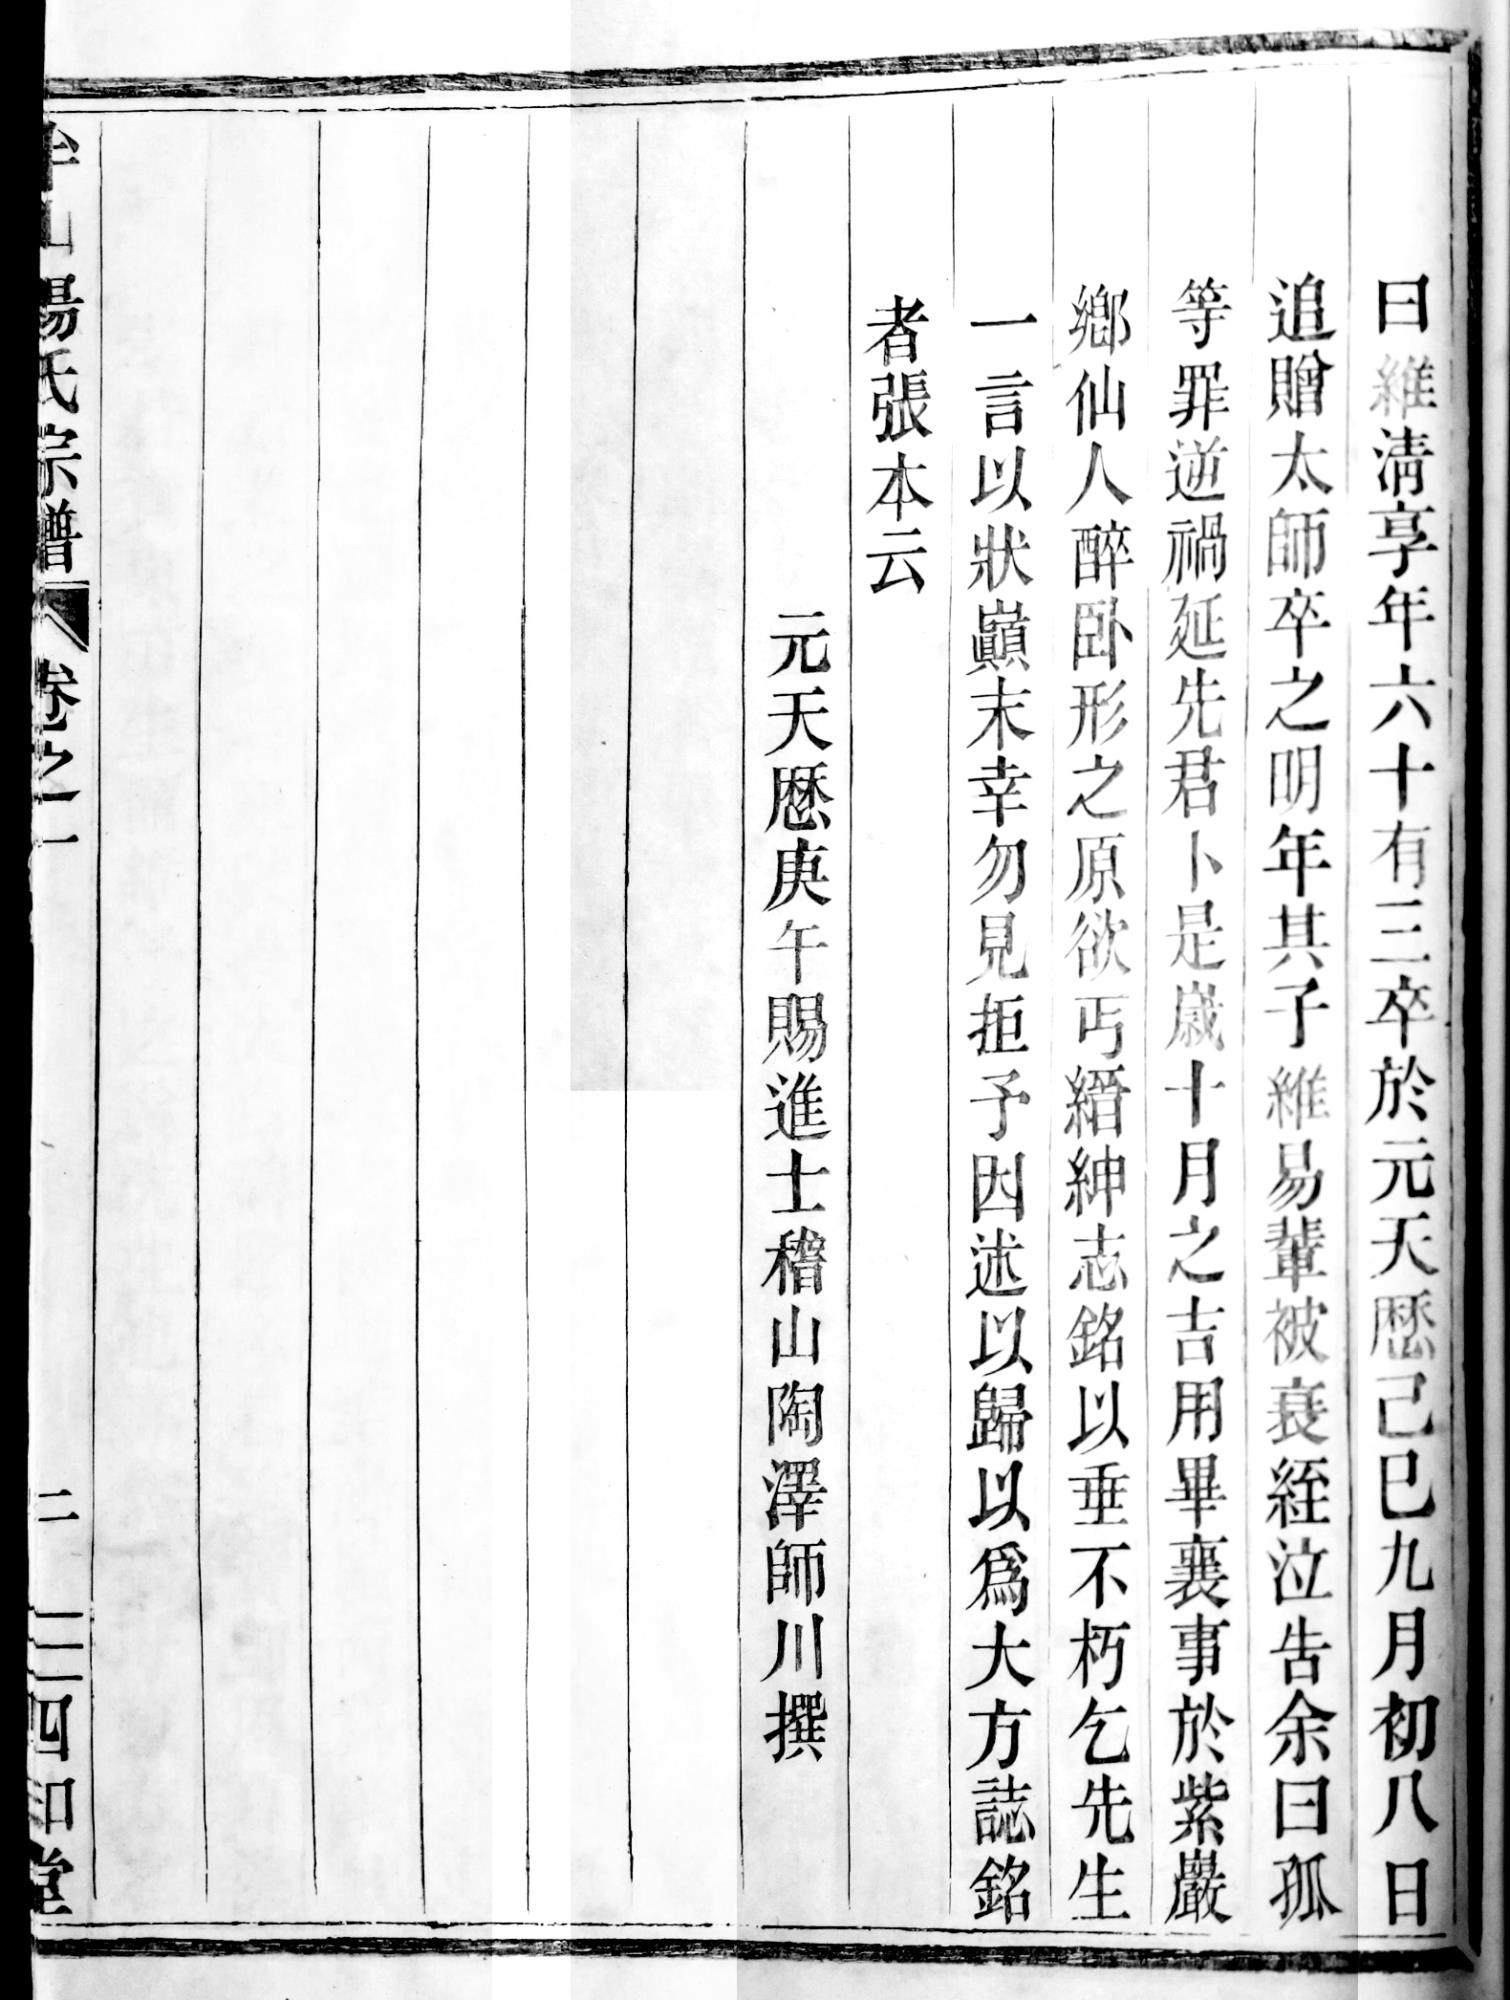 曰維淸享年六十有三卒於元天厯己巳九月初八日
追贈太師卒之明年其子維易輩被衰絰泣告余曰孤
等罪逆禍延先君卜是歲十月之吉用畢襄事於紫巖
鄉仙人醉卧形之原欲丐縉紳志銘以垂不朽乞先生
一言以狀巔末幸勿見拒予因述以歸以爲大方誌銘
者張本云
元天厯庚午賜進士稽山陶澤師川撰
山楊氏宗譜 卷之一
三 四知堂